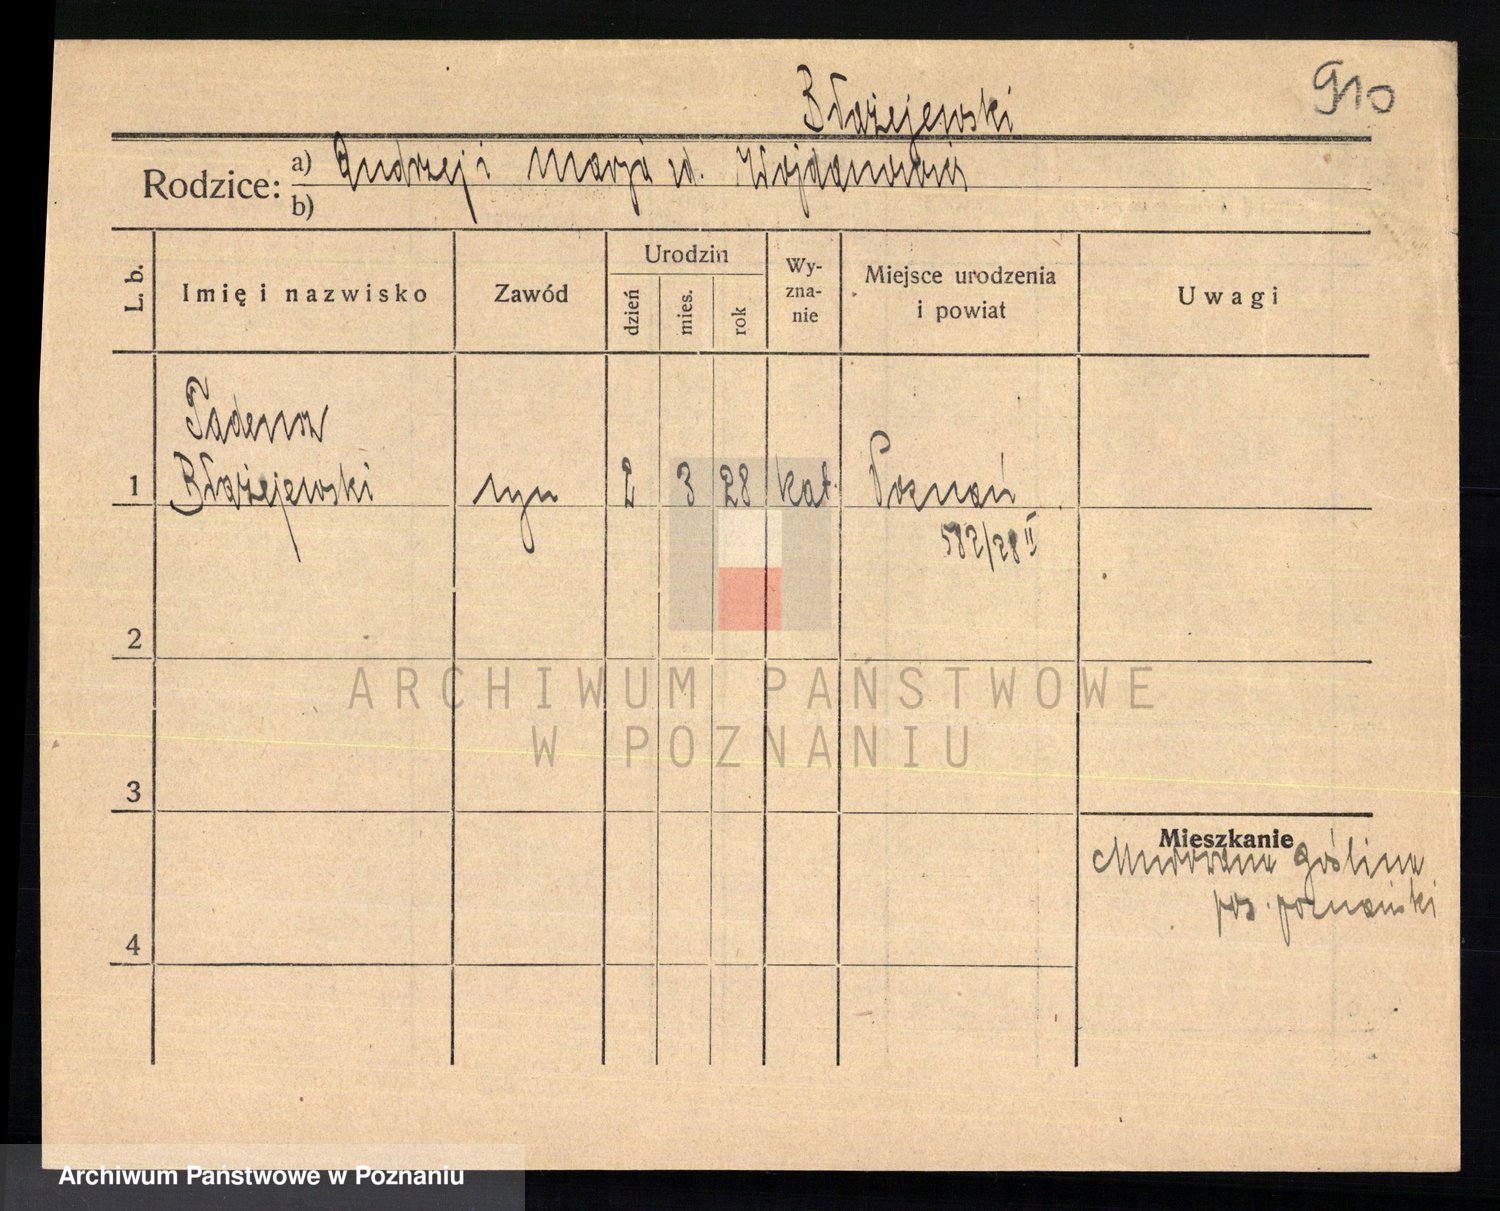 910
Błażejewski
Rodzice: a) Andrzej i Marja ur. Wojdanowicz
b)
L. b.
Imię i nazwisko
Zawód
Urodzin
dzień
mies.
rok
Wy-
zna-
nie
Miejsce urodzenia
i powiat
Uwagi
Tadeusz
1 Błażejewski syn 2 3 28 kat. Poznań
582/28 II
2
3
4
Mieszkanie
Murowana Goślina
pow. poznański
ARCHIWUM PAŃSTWOWE
W POZNANIU
Archiwum Państwowe w Poznaniu